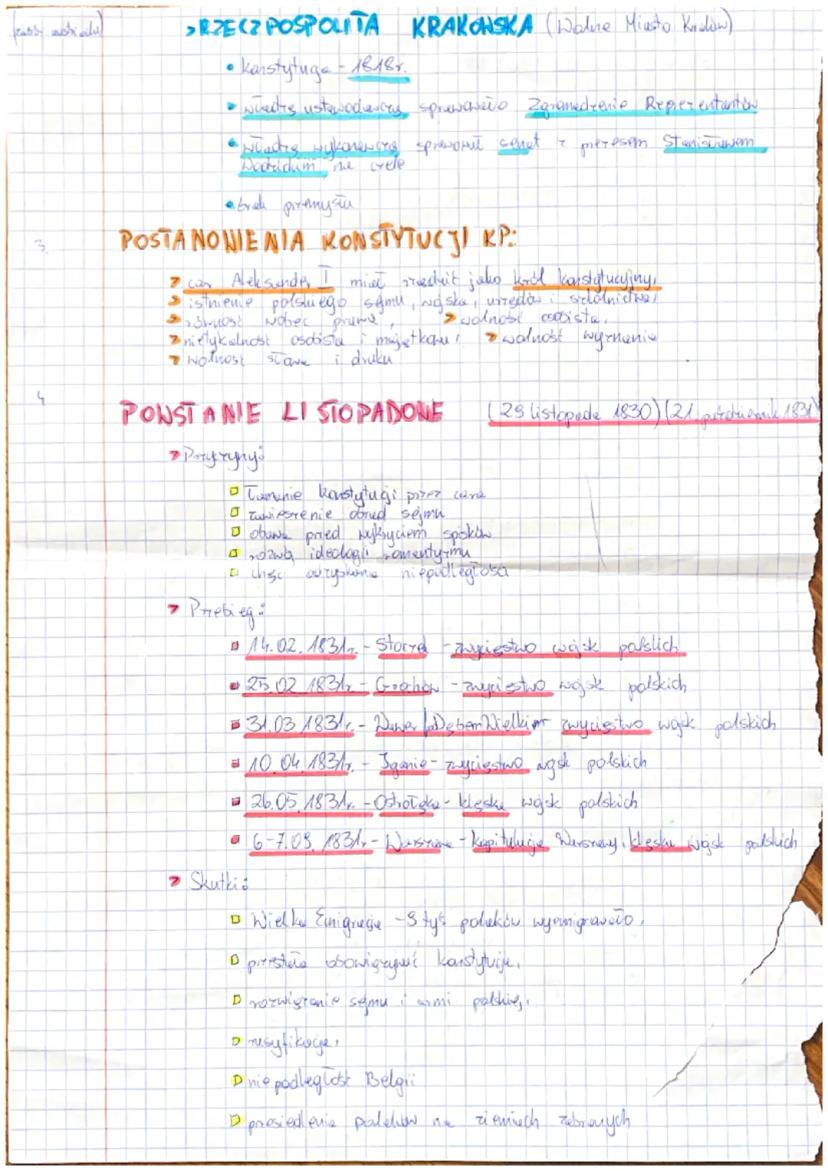 >RZECZPOSPOLITA KRAKOWSKA (Wolne Miasto Kraków)
• konstytucja - 1818r.
• władzę ustawodawczą sprawowało Zgromadzenie Reprezentantów
• władzę wykonawczą sprawował senat z prezesem Stanisławem
Wodzickim na czele
• brak przemysłu
3.
POSTANOWIENIA KONSTYTUCJI KP:
> car Aleksander I miał rządzić jako król konstytucyjny,
> istnienie polskiego sejmu, wojska, urzędów i szkolnictwa,
> równość wobec prawa, > wolność osobista,
> nietykalność osobista i majątkowa, > wolność wyznania
> wolność słowa i druku
4
POWSTANIE LISTOPADOWE (29 listopada 1830) (21 październik 1831)
> Przyczyny:
łamanie konstytucji przez cara
zawieszenie obrad sejmu
obawa przed wykryciem spisków
rozwój ideologii romantyzmu
chęć odzyskania niepodległości
> Przebieg:
14.02.1831r. - Stoczek - zwycięstwo wojsk polskich
25.02.1831r - Grochów - zwycięstwo wojsk polskich
31.03.1831r. - Wawer i Dębem Wielkim zwycięstwo wojsk polskich
10.04.1831r. - Iganie - zwycięstwo wojsk polskich
26.05.1831r. - Ostrołęka - klęska wojsk polskich
6-7.09.1831r - Warszawa - kapitulacja Warszawy, klęska wojsk polskich
> Skutki:
Wielka Emigracja - 9 tyś polaków wyemigrowało,
przestała obowiązywać konstytucja,
rozwiązanie sejmu i armi polskiej,
rusyfikacja,
niepodległość Belgii
przesiedlenie polaków na ziemiach zabranych